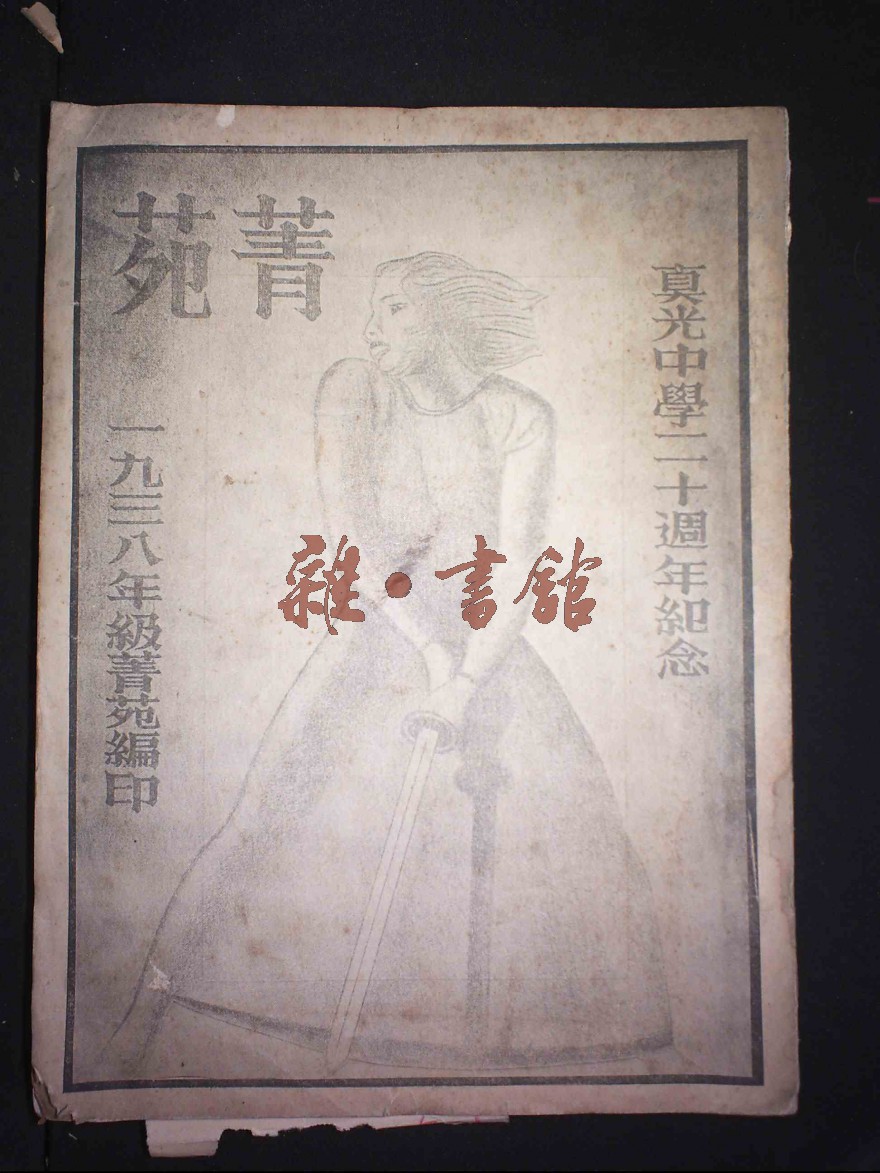 菁苑
真光中學二十週年紀念
一九三八年級菁苑編印
雜·書館